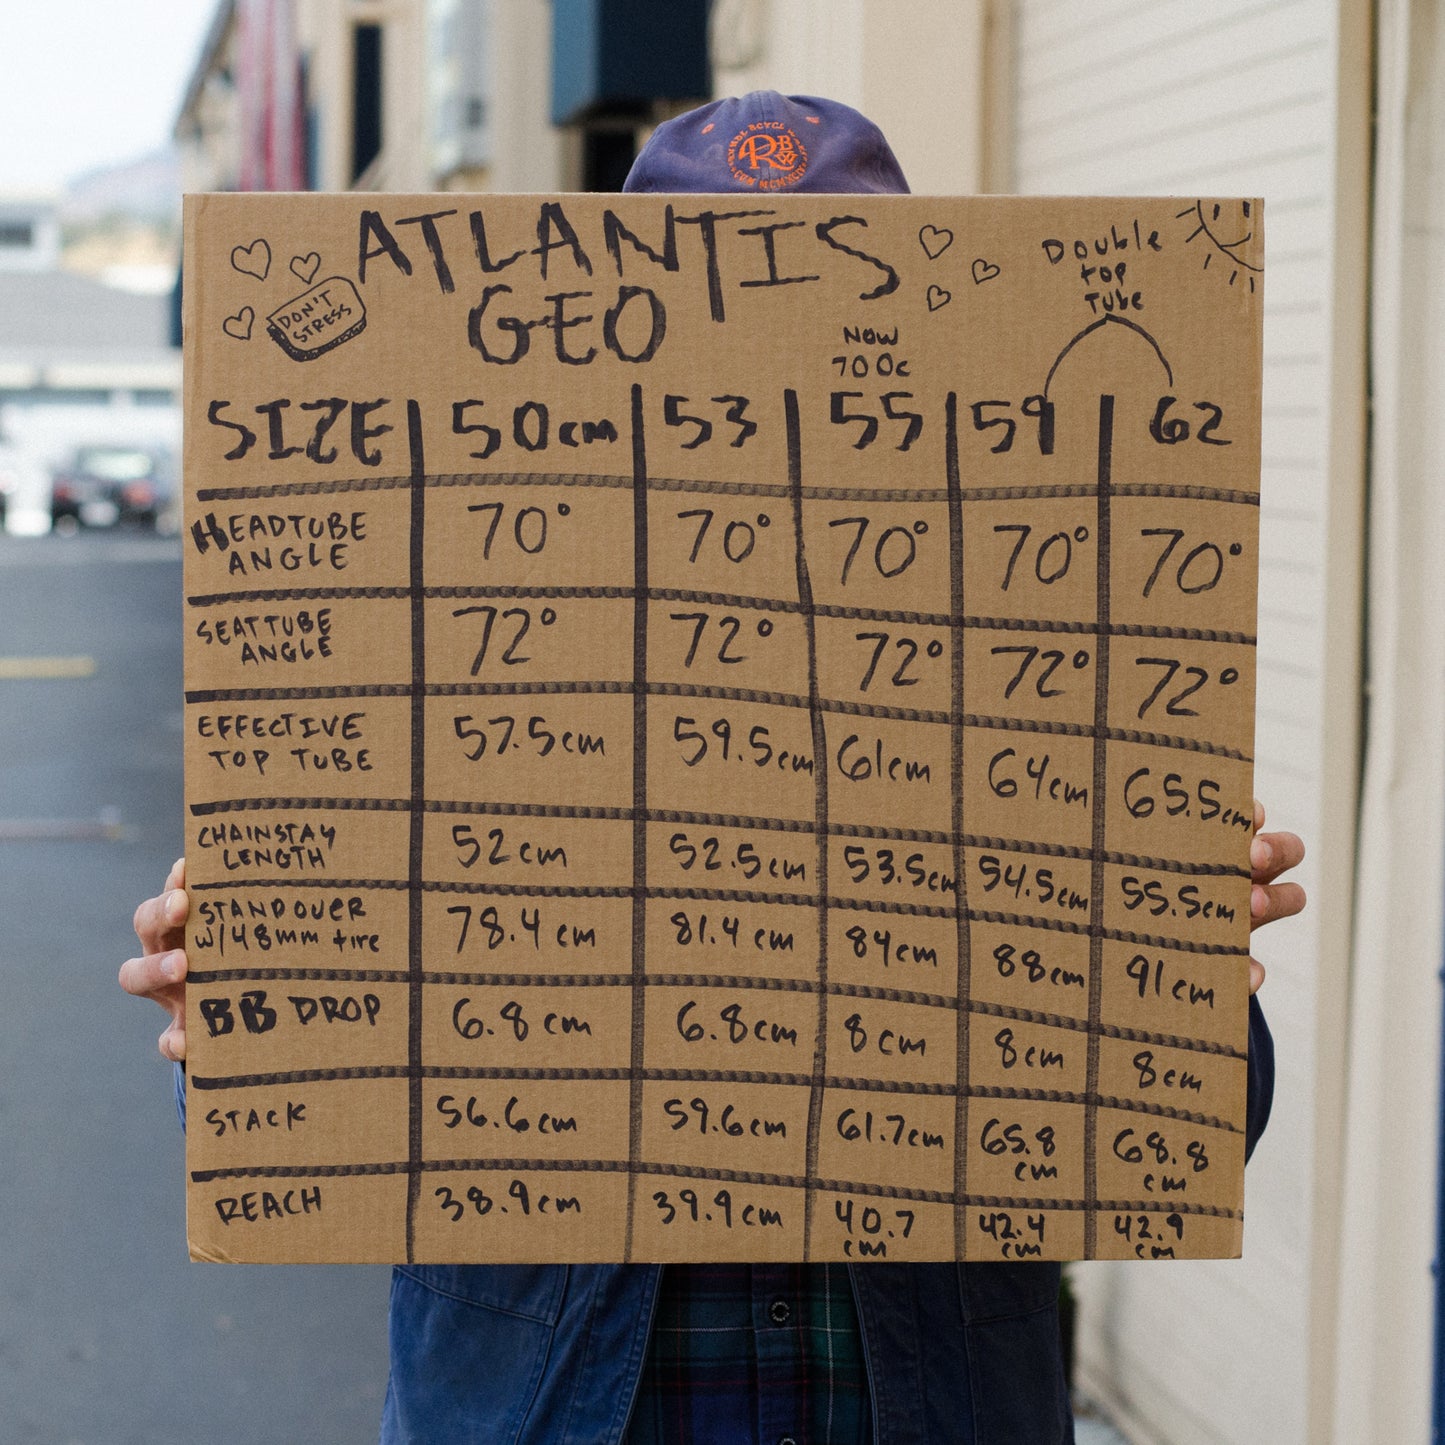 RBW
ATLANTIS
GEO
DON'T
STRESS
Double
top
Tube
Now
700c
SIZE 50cm 53 55 59 62
HEADTUBE
ANGLE
70° 70° 70° 70° 70°
SEAT TUBE
ANGLE
72° 72° 72° 72° 72°
EFFECTIVE
TOP TUBE
57.5cm 59.5cm 61cm 64cm 65.5cm
CHAINSTAY
LENGTH
52cm 52.5cm 53.5cm 54.5cm 55.5cm
STANDOVER
w/48mm tire
78.4 cm 81.4 cm 84cm 88cm 91cm
BB DROP 6.8 cm 6.8cm 8cm 8cm 8cm
STACK 56.6cm 59.6cm 61.7cm 65.8 cm 68.8 cm
REACH 38.9cm 39.9cm 40.7 cm 42.4 cm 42.9 cm